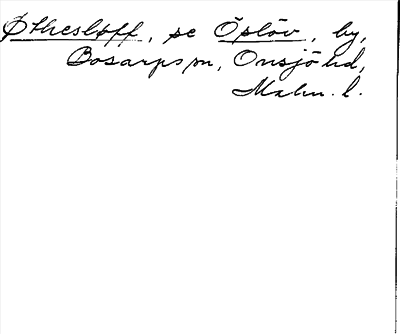 Øthesløff, se Öslöv, by,
Bosarps sn, Onsjö hd,
Malm. l.